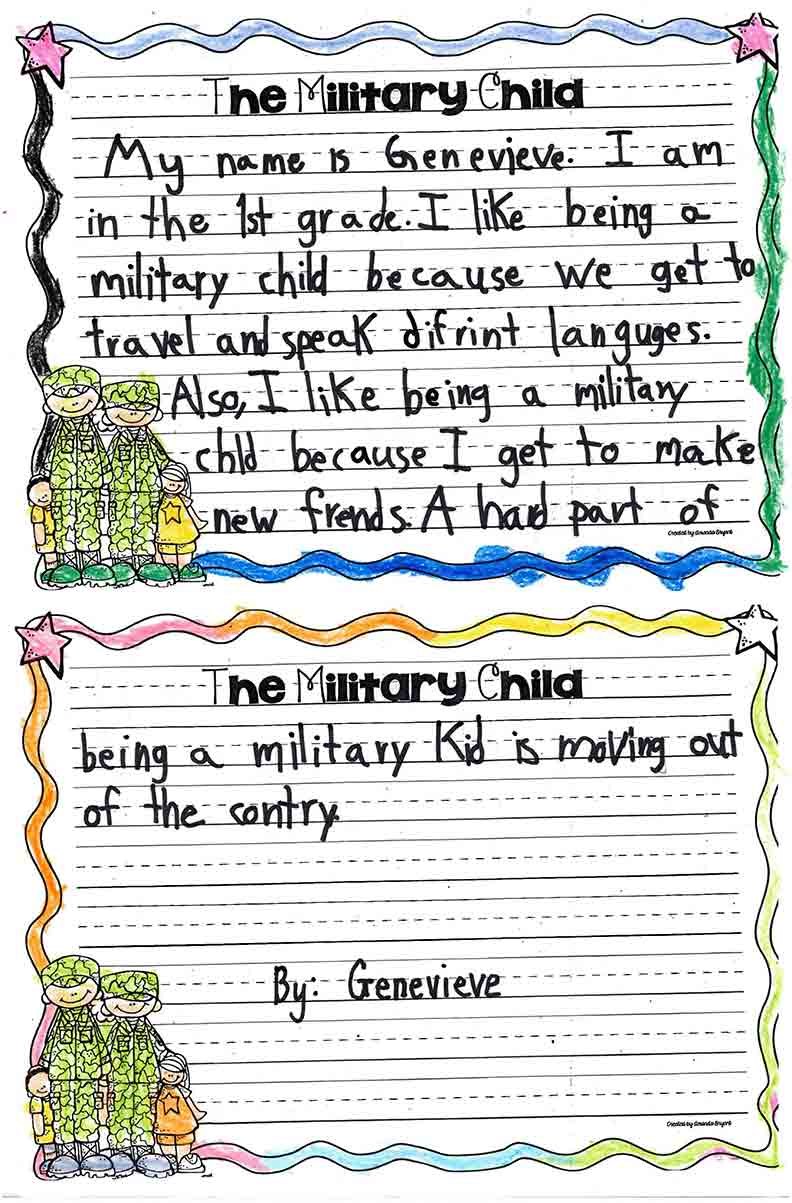 The Military Child
My name is Genevieve. I am
in the 1st grade. I like being a
military child because we get to
travel and speak difrint languges.
Also, I like being a military
chld because I get to make
new frends. A hard part of
Created by Amanda Bryant
The Military Child
being a military Kid is moving out
of the contry.
By: Genevieve
Created by Amanda Bryant